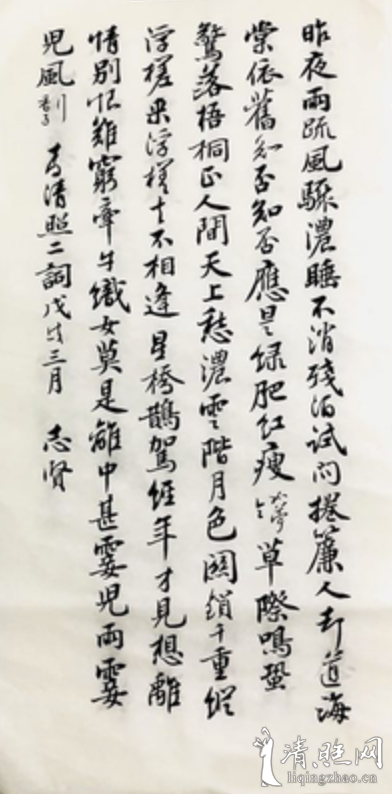 昨夜雨疏風驟濃睡不消殘酒试问捲簾人却道海
棠依舊知否知否應是绿肥红瘦 如夢令 草際鳴蛩
驚落梧桐正人間天上愁濃雲階月色關鎖千重縱
浮槎来浮槎去不相逢星橋鵲駕經年才見想離
情别恨難窮牽牛織女莫是離中甚霎兒雨霎
兒風 行香子 李清照二詞戊戌三月 志贤
清旺网
liqingzhao.cn